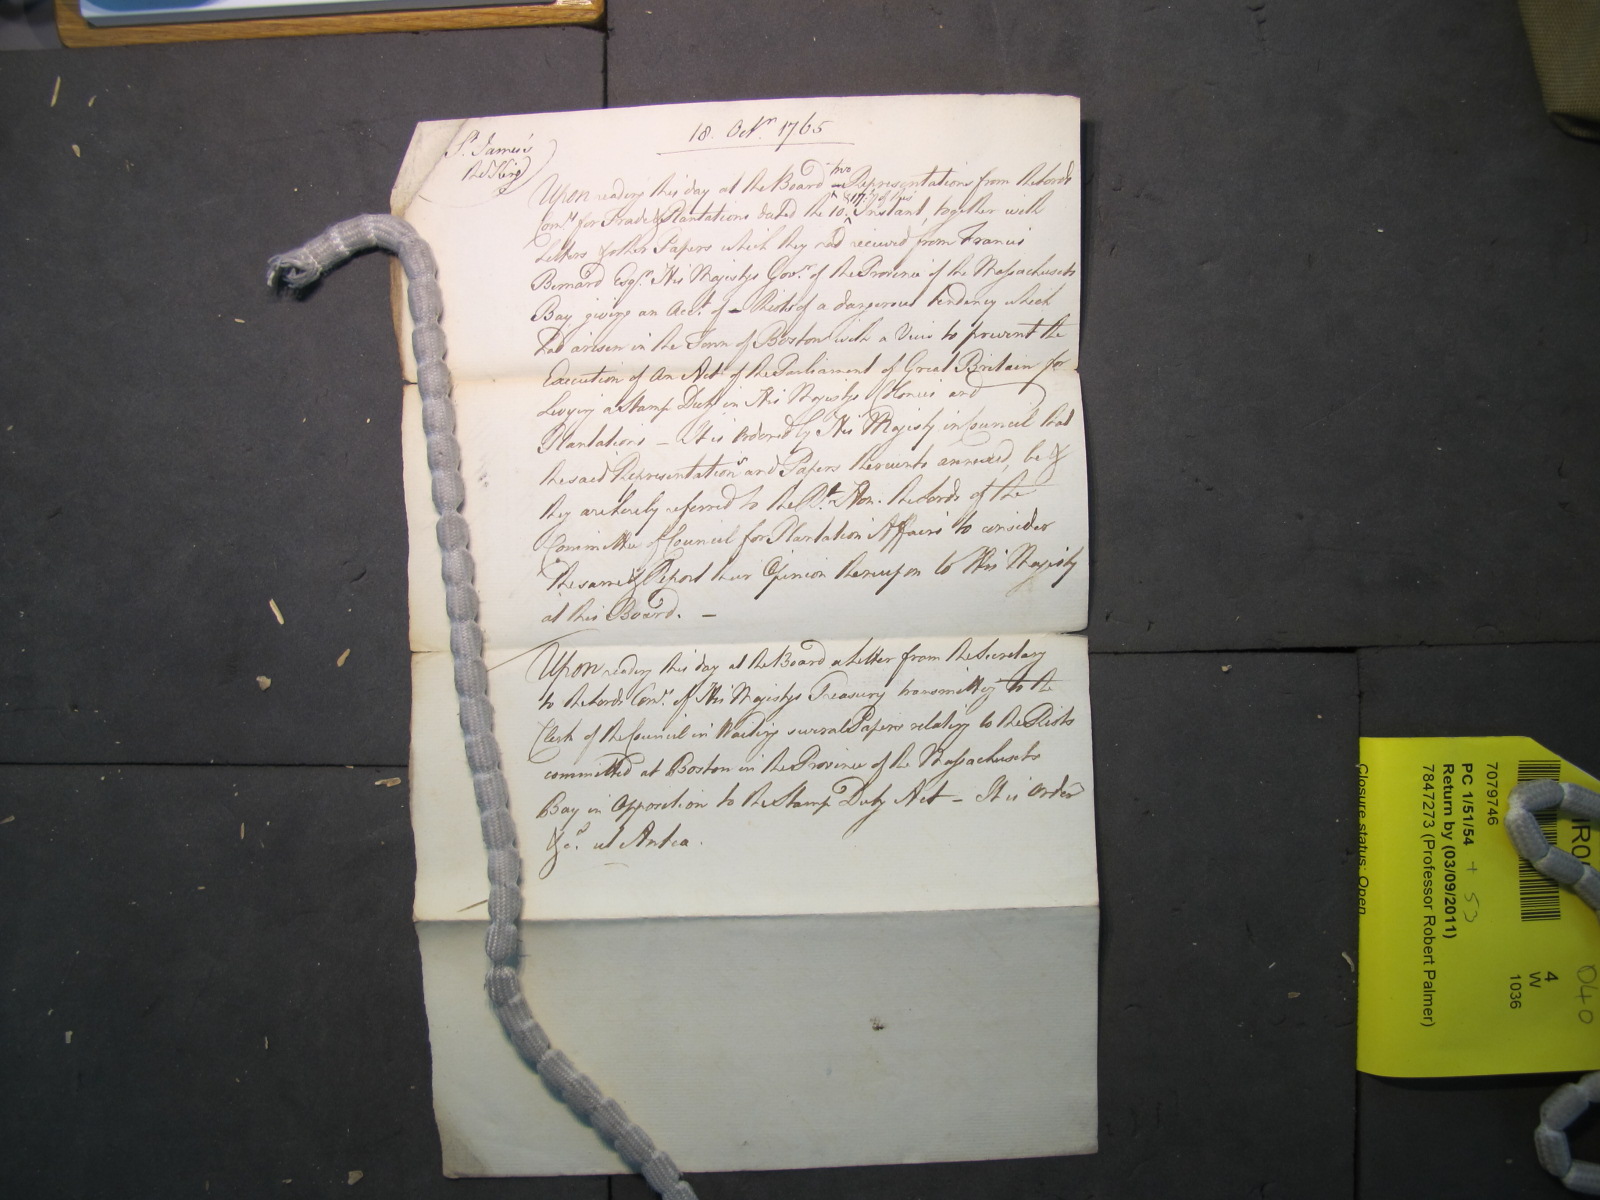 18. Octr. 1765
St. James's
the King
Upon reading this day at the Board two Representations from the Lords
Comrs. for Trade & Plantations dated the 10. & 17: of this Instant, together with
Letters & other Papers which they had received from Francis
Bernard Esqr. His Majestys Govr. of the Province of the Massachusets
Bay giving an Acct. of Riots of a dangerous tendency which
had arisen in the Town of Boston with a View to prevent the
Execution of an Act of the Parliament of Great Britain for
Levying a Stamp Duty in His Majestys Colonies and
Plantations – It is Ordered by His Majesty in Council that
the said Representations and Papers thereunto annexed, be &
they are hereby referred to the Rt. Hon. the Lords of the
Committee of Council for Plantation Affairs to consider
the same & Report their Opinion thereupon to His Majesty
at this Board. –
Upon reading this day at the Board a Letter from the Secretary
to the Lords Comrs. of His Majestys Treasury transmitting to the
Clerk of the Council in Waiting several Papers relating to the Riots
committed at Boston in the Province of the Massachusets
Bay in Opposition to the Stamp Duty Act – It is Order
&ca. ut Antea.
040
4
W
1036
7079746
PC 1/51/54 + 53
Return by (03/09/2011)
7847273 (Professor Robert Palmer)
Closure status: Open